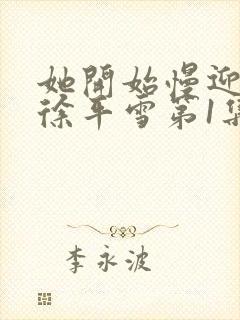 她開始慢迎
徐平雪第1集
李永波